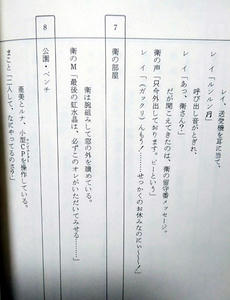 レイ、送受機を耳に当て、
レイ「ルンルン月」
呼び出し音がとぎれ、
レイ「あっ、衛さん？」
だが聞こえてきたのは、衛の留守番メッセージ。
衛の声「只今外出しております。ピーという」
レイ「(ガックリ)んもう！……せっかくのお休みなのにぃ～～～！」
7
衛の部屋
衛は腕組みして窓の外を眺めている。
衛のM「最後の虹水晶は、必ずこのオレがいただいてみせる……」
8
公園・ベンチ
亜美とルナ、小型CPを操作している。
まこと「二人して、なにやってるのよ？」